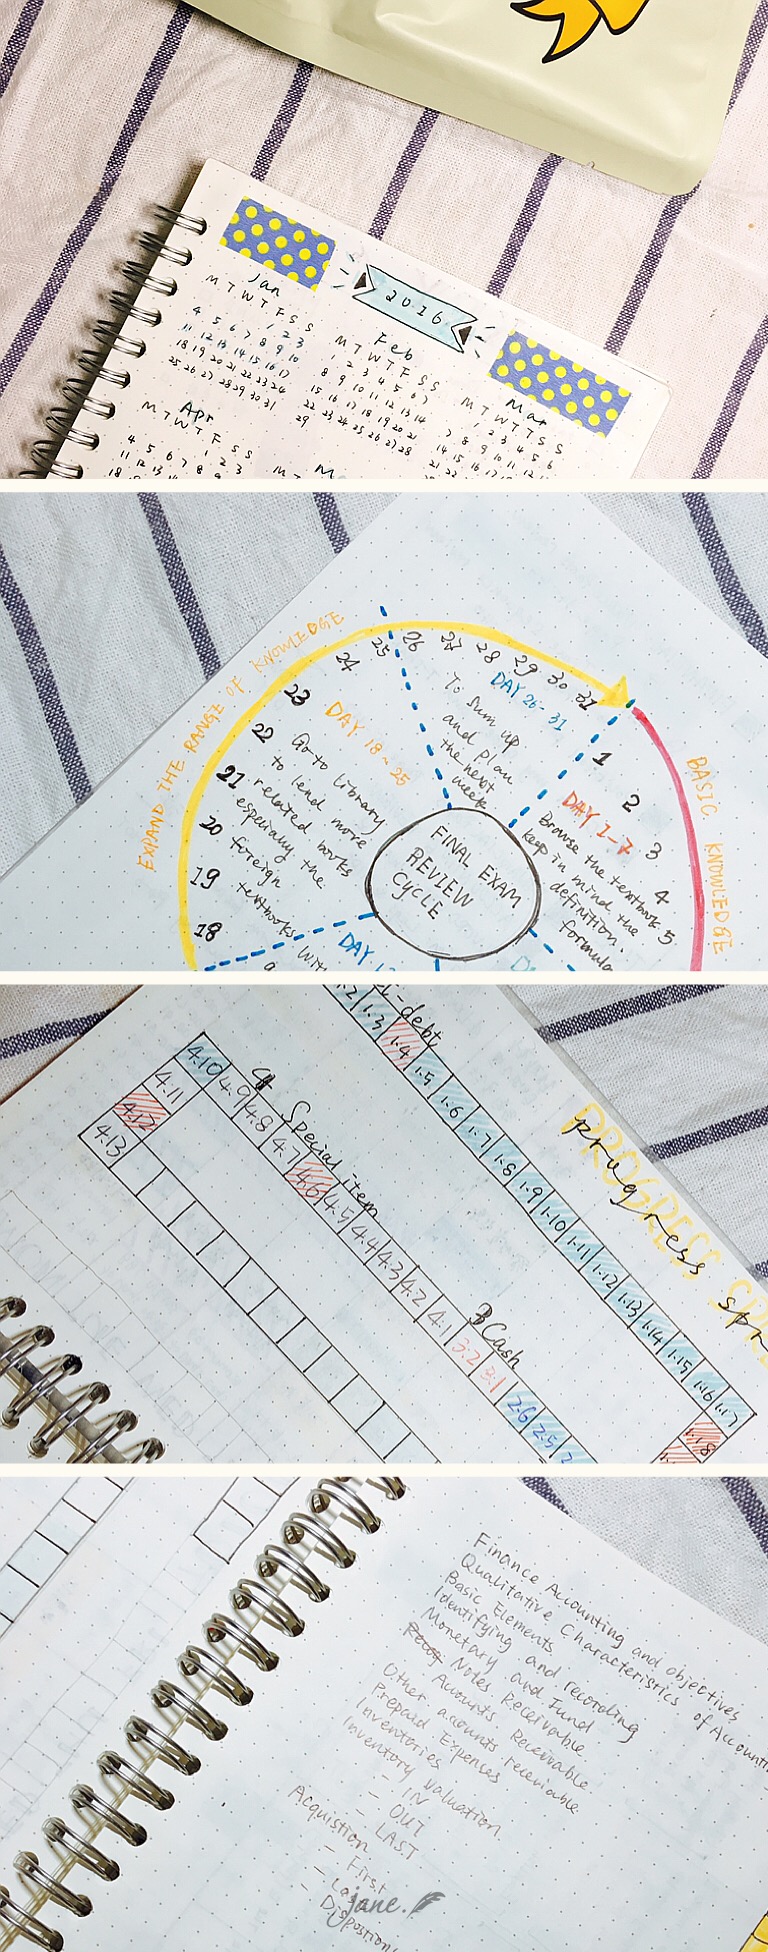 2016
Jan
M T W T F S S
1 2 3
4 5 6 7 8 9 10
11 12 13 14 15 16 17
18 19 20 21 22 23 24
25 26 27 28 29 30 31
Feb
M T W T F S S
1 2 3 4 5 6 7
8 9 10 11 12 13 14
15 16 17 18 19 20 21
22 23 24 25 26 27 28
29
Mar
M T W T T S S
1 2 3 4 5 6
7 8 9 10 11 12
14 15 16 17 18
21 22
Apr
M T W T F S S
1 2 3
4 5 6 7 8 9
11 12 13 14
18
M T
EXPAND THE RANGE OF KNOWLEDGE
BASIC KNOWLEDGE
FINAL EXAM
REVIEW
CYCLE
1
2
3
4
5
DAY 1-7
Browse the textbook
keep in mind the
definition.
formula
18
19
20
21
22
23
24
25
DAY 18~25
Go to library
to lend more
related books
especially the
foreign
textbooks
26
27
28
29
30
31
DAY 26-31
To sum up
and plan
the next
week
DAY
PROGRESS
progress
debt
1.3
1.4
1.5
1.6
1.7
1.8
1.9
1.10
1.11
1.12
1.13
1.14
1.15
1.16
1.17
1.18
4 Special item
4.13
4.12
4.11
4.10
4.9
4.8
4.7
4.6
4.5
4.4
4.3
4.2
4.1
3 Cash
3.2
3.1
2.6
2.5
Finance Accounting and objectives
Qualitative Characteristics of Accounti
Basic Elements
Identifying and recording
Monetary and Fund
Notes Receivable
Accounts Receivable
Other accounts receivable
Prepaid Expenses
Inventories
Inventory Valuation
- IN
- OUT
- LAST
Acquistion
- First
- Last
- Dispostion
jane.